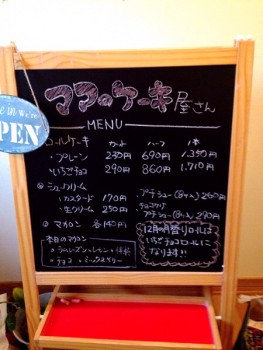 OPEN
ママのケーキ屋さん
MENU
ロールケーキ カット ハーフ 1本
・プレーン 230円 690円 1,350円
・いちごチョコ 290円 860円 1,710円
シュークリーム
・カスタード 170円
・生クリーム 250円
プチシュー(8ヶ入) 260円
プチシュー(8ヶ入) 290円
マカロン 各140円
本日のマカロン
チョコ・ミックスベリー
12月の月替りロールは
いちごチョコロールに
なります!!